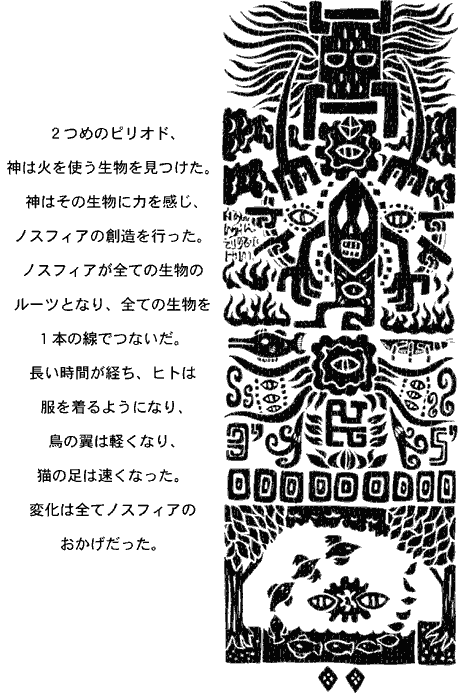 2つめのピリオド、
神は火を使う生物を見つけた。
神はその生物に力を感じ、
ノスフィアの創造を行った。
ノスフィアが全ての生物の
ルーツとなり、全ての生物を
1本の線でつないだ。
長い時間が経ち、ヒトは
服を着るようになり、
鳥の翼は軽くなり、
猫の足は速くなった。
変化は全てノスフィアの
おかげだった。